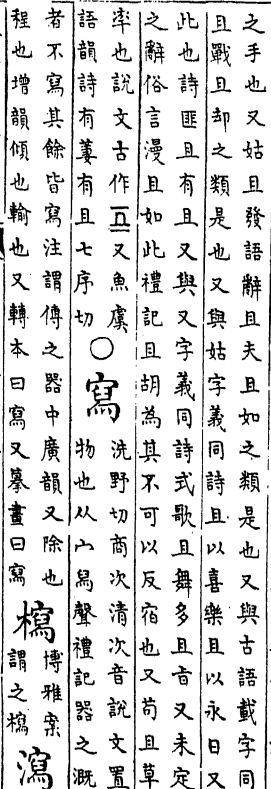 之手也又姑且發語辭且夫且如之類是也又與古語載字同
且戰且却之類是也又與姑字義同詩且以喜樂且以永日又
此也詩匪且有且又與又字義同詩式歌且舞多且旨又未定
之辭俗言漫且如此禮記且胡為其不可以反宿也又苟且草
率也說文古作又魚虞
語韻詩有萋有且七序切
○寫
洗野切商次清次音說文置
物也从宀舄聲禮記器之溉
者不寫其餘皆寫注謂傳之器中廣韻又除也
程也增韻傾也輸也又轉本曰寫又摹畫曰寫
㯓
博雅案
謂之㯓
瀉